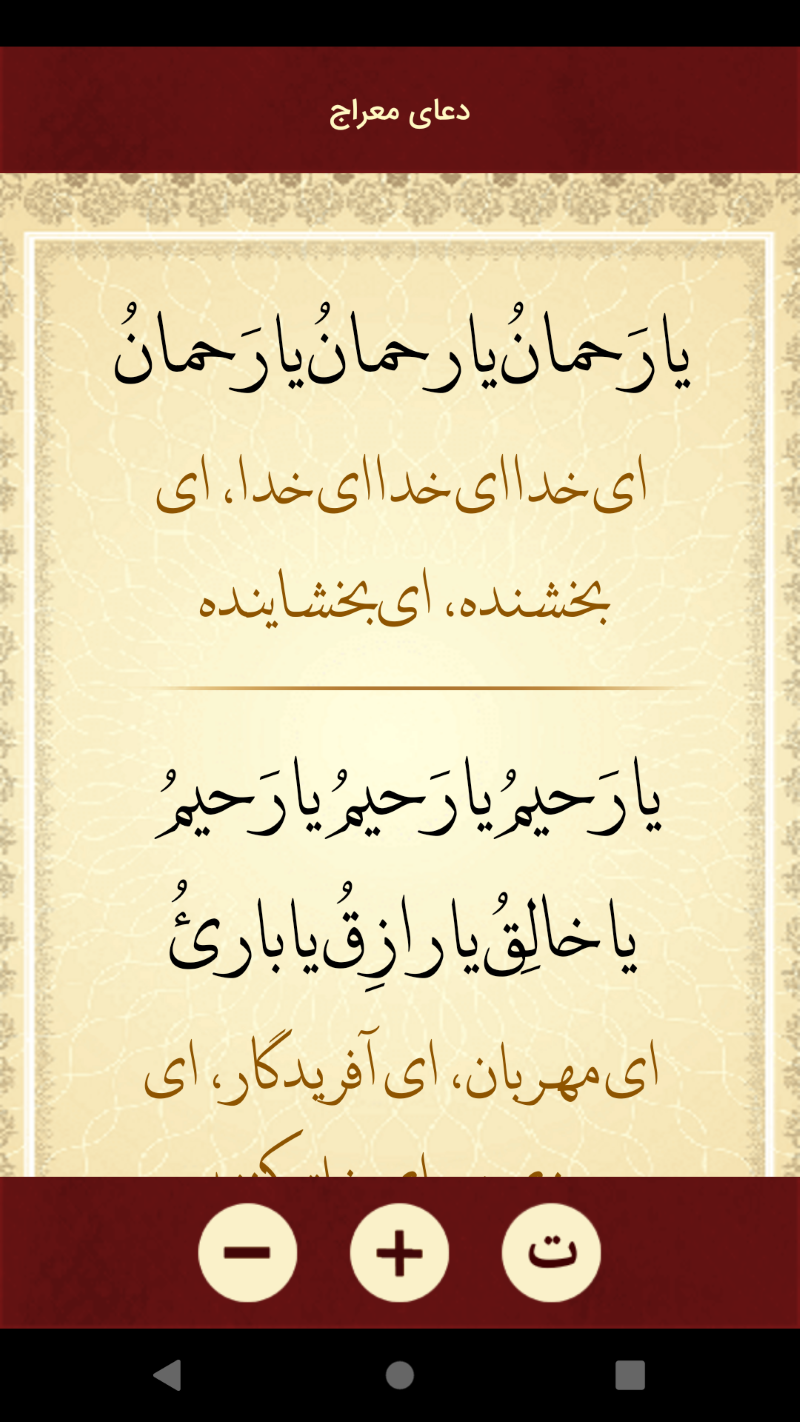 دعای معراج
یا رَحمانُ یا رحمانُ یا رَحمانُ
ای خدا ای خدا ای خدا، ای
بخشنده، ای بخشاینده
یا رَحیمُ یا رَحیمُ یا رَحیمُ
یا خالِقُ یا رازِقُ یا بارئُ
ای مهربان، ای آفریدگار، ای
ت